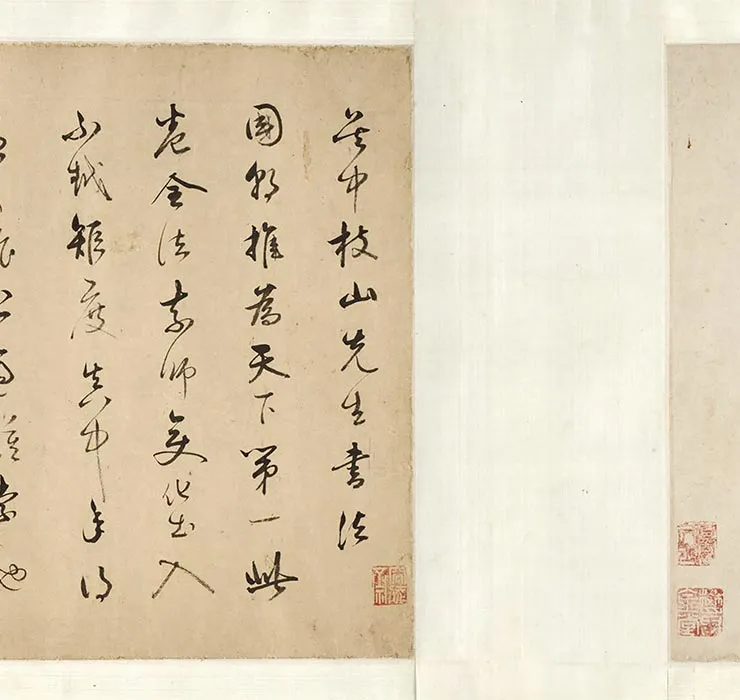 吳中枝山先生書法
國朝推為天下第一此
卷全法素師變化出入
不越矩度真中年得